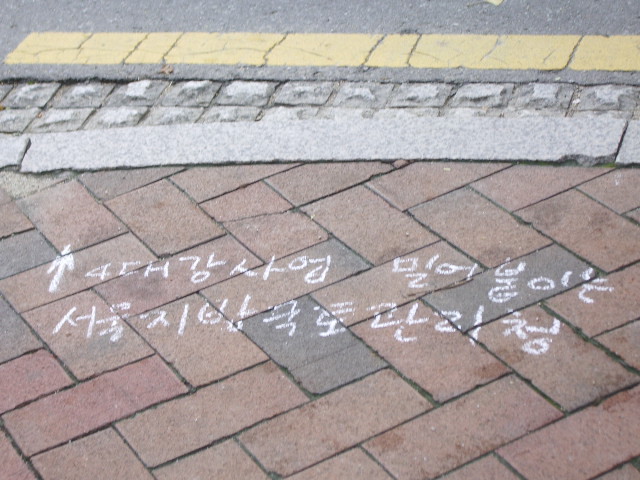 ↑ 4대강사업 밀어붙이는
서울지방국토관리청